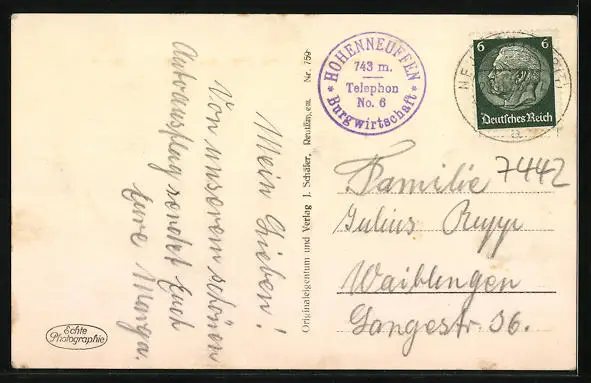 Meine Lieben!
Von unserem schönen
Autoausflug sendet Euch
Eure Marga.
Echte
Photographie
Originaleigentum und Verlag J. Schäfer, Reutlingen. Nr. 759
HOHENNEUFFEN
743 m.
Telephon
No. 6
* Burgwirtschaft *
6 6
Deutsches Reich
a
7442
Familie
Julius Rupp
Waiblingen
Langestr. 36.